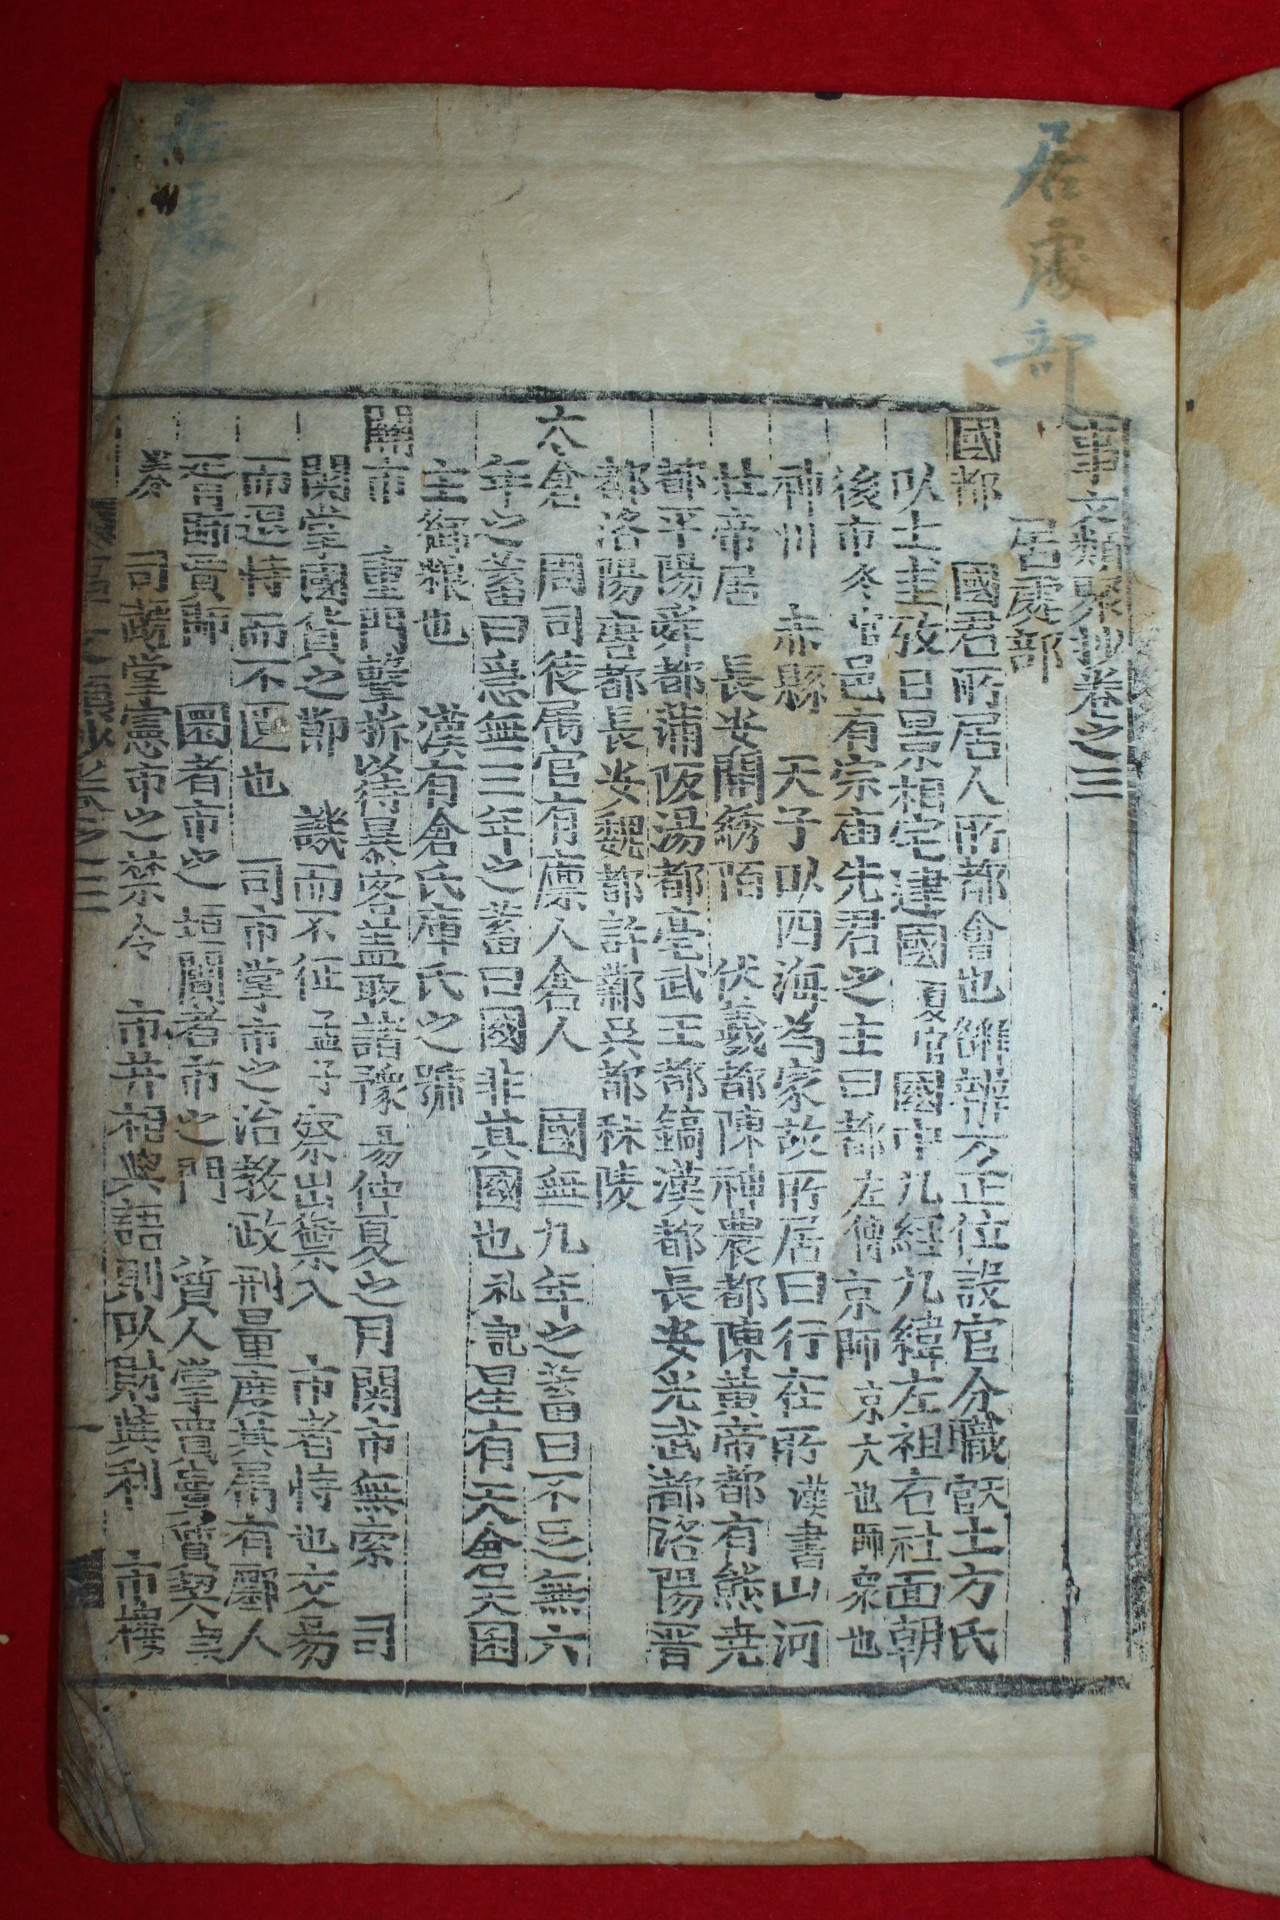 居處部
事文類聚抄卷之三
居處部
國都 國君所居人所都會也 辨方正位設官分職 天官 土方氏
以土圭致日景相宅建國 夏官 國中九經九緯左祖右社面朝
後市 冬官 邑有宗庙先君之主曰都 左傳 京師 京大也師衆也
神州 赤縣 天子以四海為家故所居曰行在所 漢書 山河
壮帝居 長安關綉陌 伏羲都陳神農都陳黃帝都有熊尭
都平陽舜都蒲阪湯都亳武王都鎬漢都長安光武都洛陽晋
都洛陽唐都長安魏都許鄴吳都秣陵
太倉 周司徒属官有廩人倉人 國無九年之蓄曰不足無六
年之蓄曰急無三年之蓄曰國非其國也 礼記 星有天倉天囷
主御粮也 漢有倉氏庫氏之號
關市 重門擊拆以待暴客盖取諸豫 易 仲夏之月関市無索 司
関掌國貨之節 譏而不征 孟子 察出禦入 市者恃也交易
而退恃而不匱也 司市掌市之治教政刑量度其属有廛人
胥師賈師 圜者市之垣闠者市之門 質人掌賣儥質契
司虣掌憲市之禁令 市井相與語則以財與利 市樓